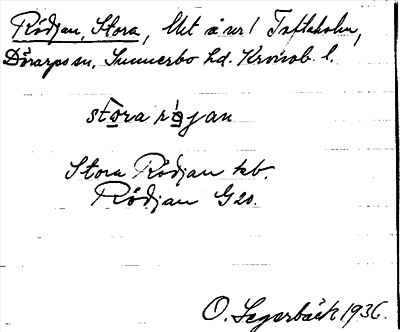 Rödjan, Stora, Utt å ur! Toftaholm,
Dörarps sn, Sunnerbo hd. Kronob. l.
stora röjan
Stora Rödjan kb.
Rödjan G20.
O. Segerbäck 1936.